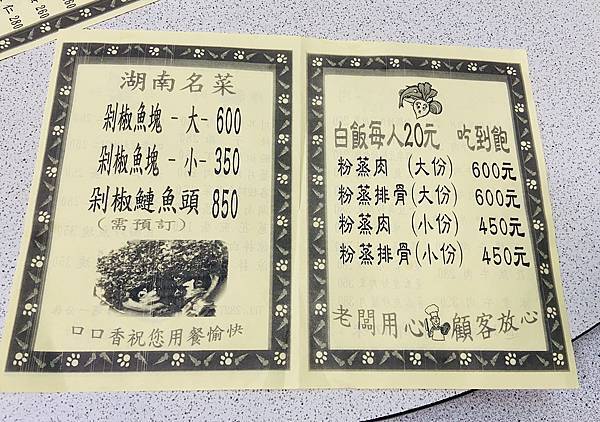 仁 280
260
260
湖南名菜
剁椒魚塊 - 大 - 600
剁椒魚塊 - 小 - 350
剁椒鰱魚頭 850
(需預訂)
口口香祝您用餐愉快
白飯每人20元 吃到飽
粉蒸肉 (大份) 600元
粉蒸排骨(大份) 600元
粉蒸肉 (小份) 450元
粉蒸排骨(小份) 450元
老闆用心 顧客放心